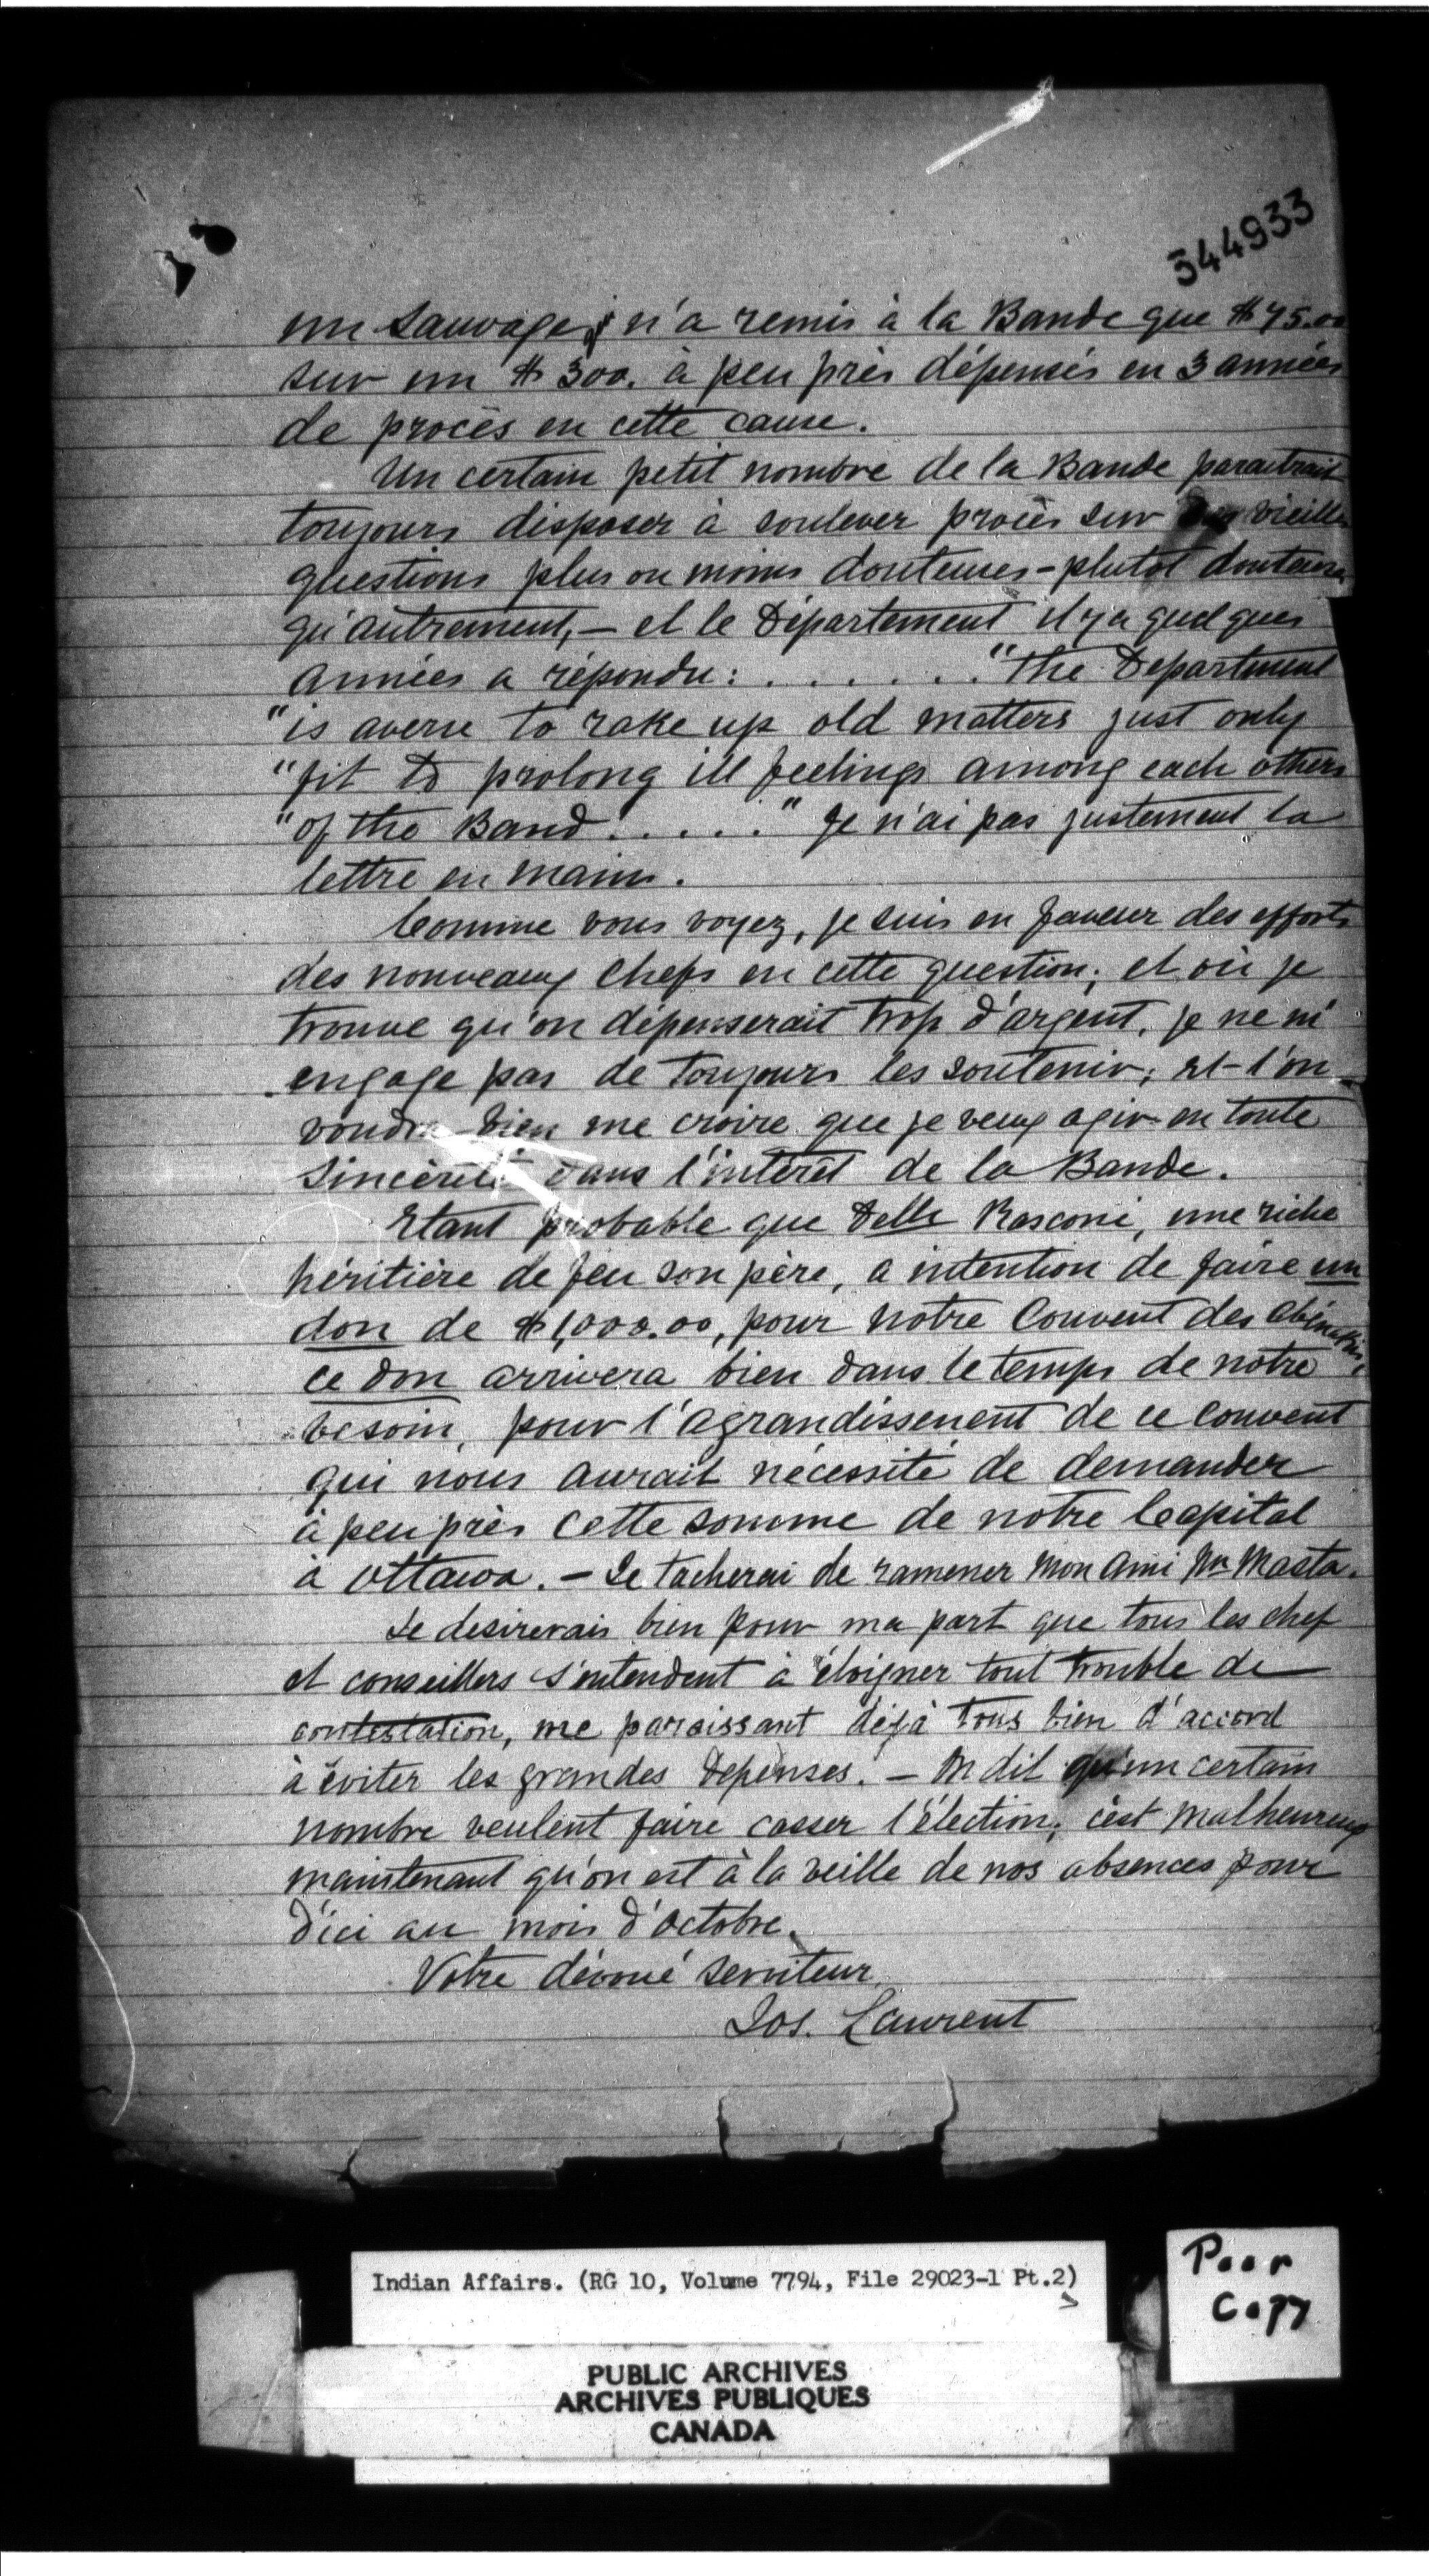 344933
un Sauvage, n'a remis à la Bande que $75.00
sur un $300. à peu près dépensés en 3 années
de procès en cette cause.
Un certain petit nombre de la Bande paraitrait
toujours disposer à soulever procès sur vieilles
questions plus ou moins douteuses - plutôt douteuses
qu'autrement, - et le Département il y a quelques
années a répondu: . . . . . . . "The Department
"is averse to rake up old matters just only
"fit to prolong ill feelings among each others
"of the Band . . . . ." Je n'ai pas justement la
lettre en mains.
Comme vous voyez, je suis en faveur des efforts
des nouveaux Chefs en cette question; et où je
trouve qu'on dépenserait trop d'argent, je ne m'
engage pas de toujours les soutenir; et l'on
voudra bien me croire que je veux agir en toute
sincèrité dans l'intérêt de la Bande.
Etant probable que Delle Rasconi, une riche
héritière de feu son père, a intention de faire un
don de $1,000.00, pour notre Couvent des Abénakis,
ce don arrivera bien dans le temps de notre
besoin, pour l'agrandissement de ce couvent
qui nous aurait nécessité de demander
à peu près cette somme de notre Capital
à Ottawa. - Je tacherai de ramener mon ami Mr Masta.
Je desirerais bien pour ma part que tous les chef
et conseillers s'entendent à éloigner tout trouble de
contestation, me paraissant déjà tous bien d'accord
à éviter les grandes dépenses. - On dit qu'un certain
nombre veulent faire casser l'élection; c'est malheureux
maintenant qu'on est à la veille de nos absences pour
d'ici au mois d'Octobre.
Votre dévoué serviteur
Jos. Laurent
Indian Affairs. (RG 10, Volume 7794, File 29023-1 Pt.2)
Poor
Copy
PUBLIC ARCHIVES
ARCHIVES PUBLIQUES
CANADA